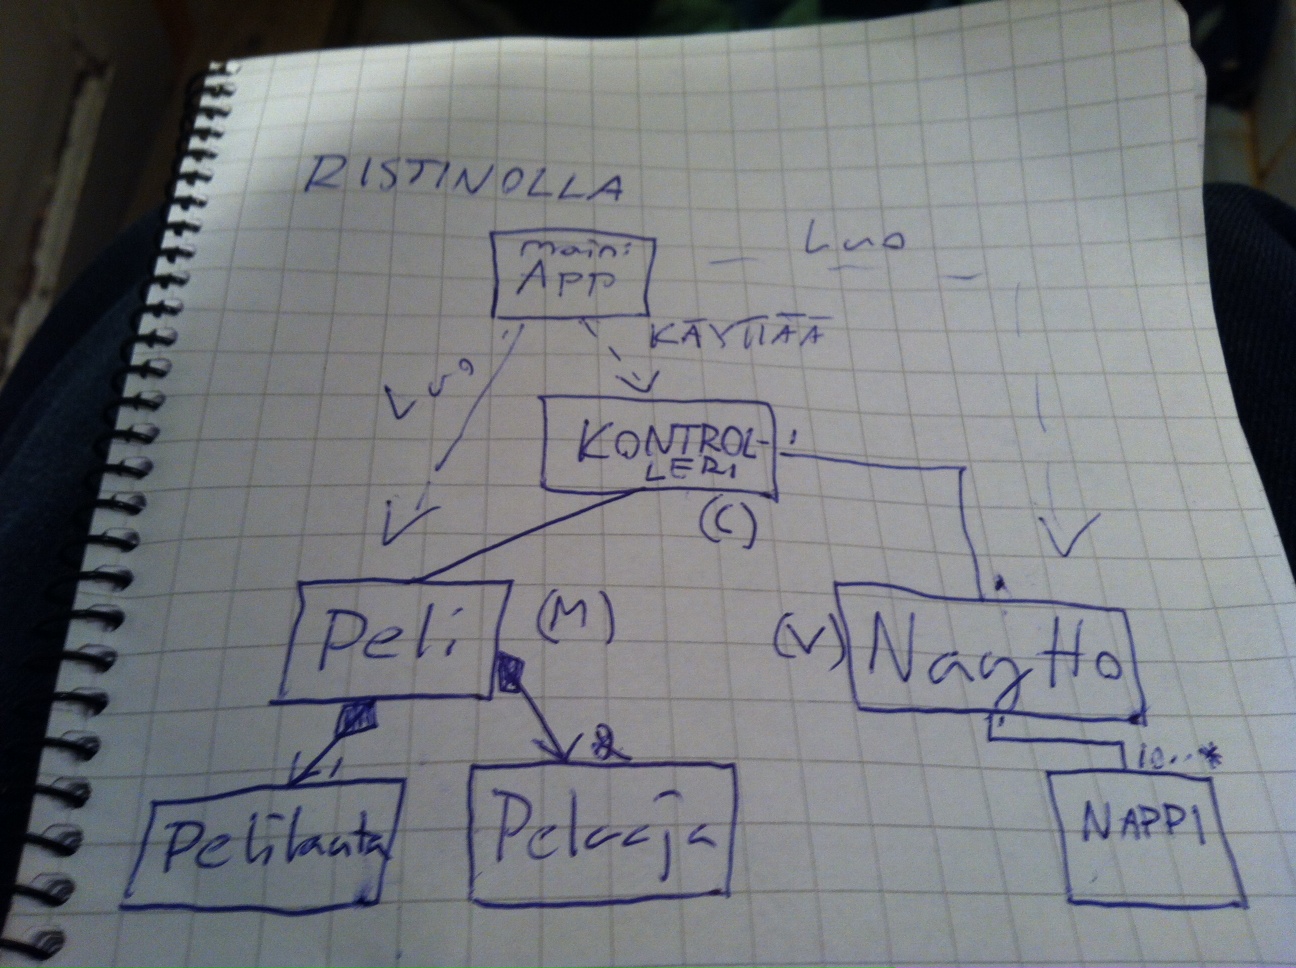 RISTINOLLA
main:
App
Luo
KÄYTTÄÄ
Luo
KONTROL-
LERI
1
(C)
Peli
(M)
(V)
Näyttö
1
1
2
10..*
Pelilauta
Pelaaja
NAPPI